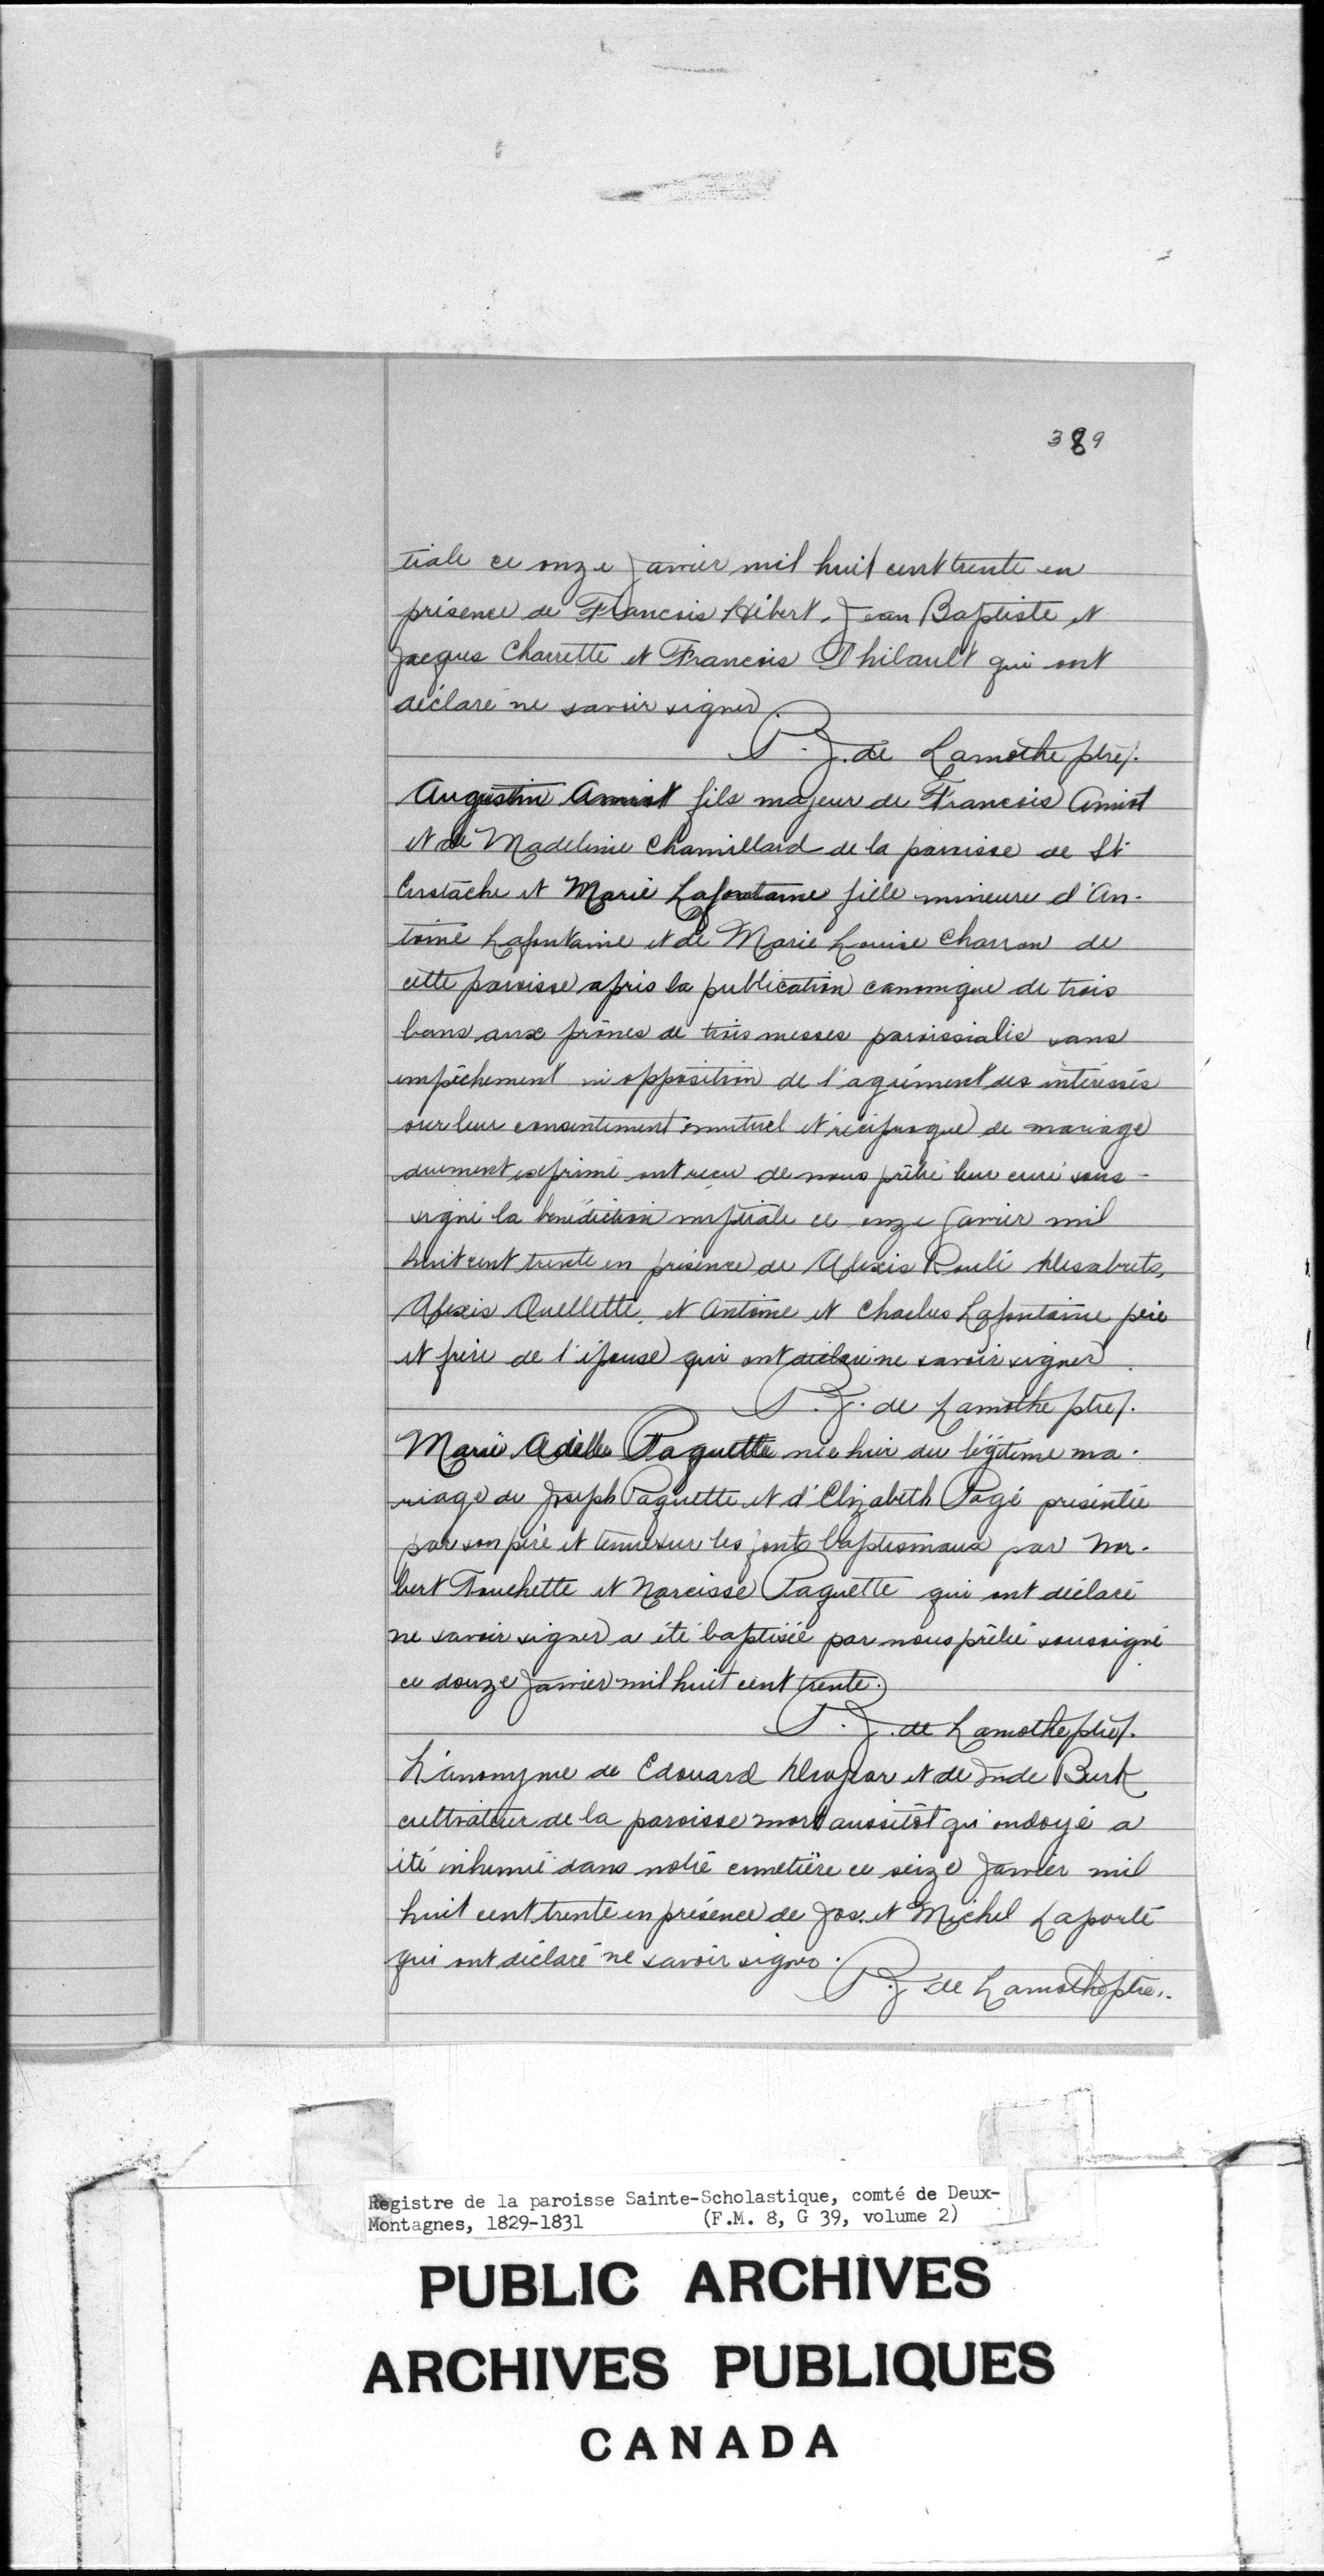 389
tiale ce onze janvier mil huit cent trente en
présence de Francois Hébert, Jean Baptiste et
Jacques Charrette et Francois Thibault qui ont
déclaré ne savoir signer.
P. J. de Lamothe ptre/.
Augustin Amiot fils majeur de Francois Amiot
et de Madeleine Chamillard de la paroisse de St
Eustache et Marie Lafontaine fille mineure d'An-
toine Lafontaine et de Marie Louise Charron de
cette paroisse après la publication canonique de trois
bans aux prônes de trois messes paroissiales sans
empêchement ni opposition de l'agrément des intéressés
sur leur consentement mutuel et réciproque de mariage
duement exprimé ont reçu de nous prêtre leur curé sous-
signé la bénédiction nuptiale ce onze janvier mil
huit cent trente en présence de Alexis
Alexis Ouellette, et Antoine et Charles Lafontaine père
et frère de l'épouse qui ont déclaré ne savoir signer.
P. J. de Lamothe ptre/.
Marie Adelle Paquette née hier du légitime ma-
riage de Joseph Paquette et d'Elizabeth Pagé présentée
par son père et tenue sur les fonts baptismaux par Nor-
bert Touchette et Narcisse Paquette qui ont déclaré
ne savoir signer a été baptisée par nous prêtre soussigné
ce douze janvier mil huit cent trente.
P. J. de Lamothe ptre/.
L'anonyme de Edouard et de Burk
cultivateur de la paroisse mort aussitôt qu'ondoyé a
été inhumé dans notre cimetière ce seize janvier mil
huit cent trente en présence de Jos. et Michel Laporte
qui ont déclaré ne savoir signer.
P. J. de Lamothe ptre..
Registre de la paroisse Sainte-Scholastique, comté de Deux-
Montagnes, 1829-1831 (F.M. 8, G 39, volume 2)
PUBLIC ARCHIVES
ARCHIVES PUBLIQUES
CANADA